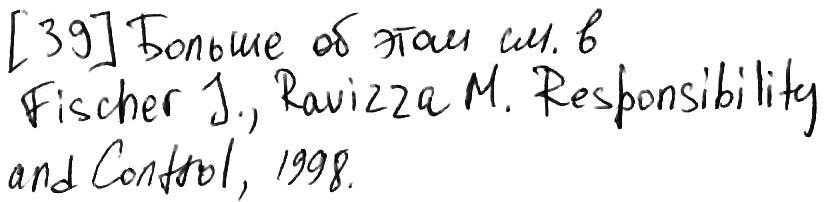 [39] Больше об этом см. в
Fischer J., Ravizza M. Responsibility
and Control, 1998.